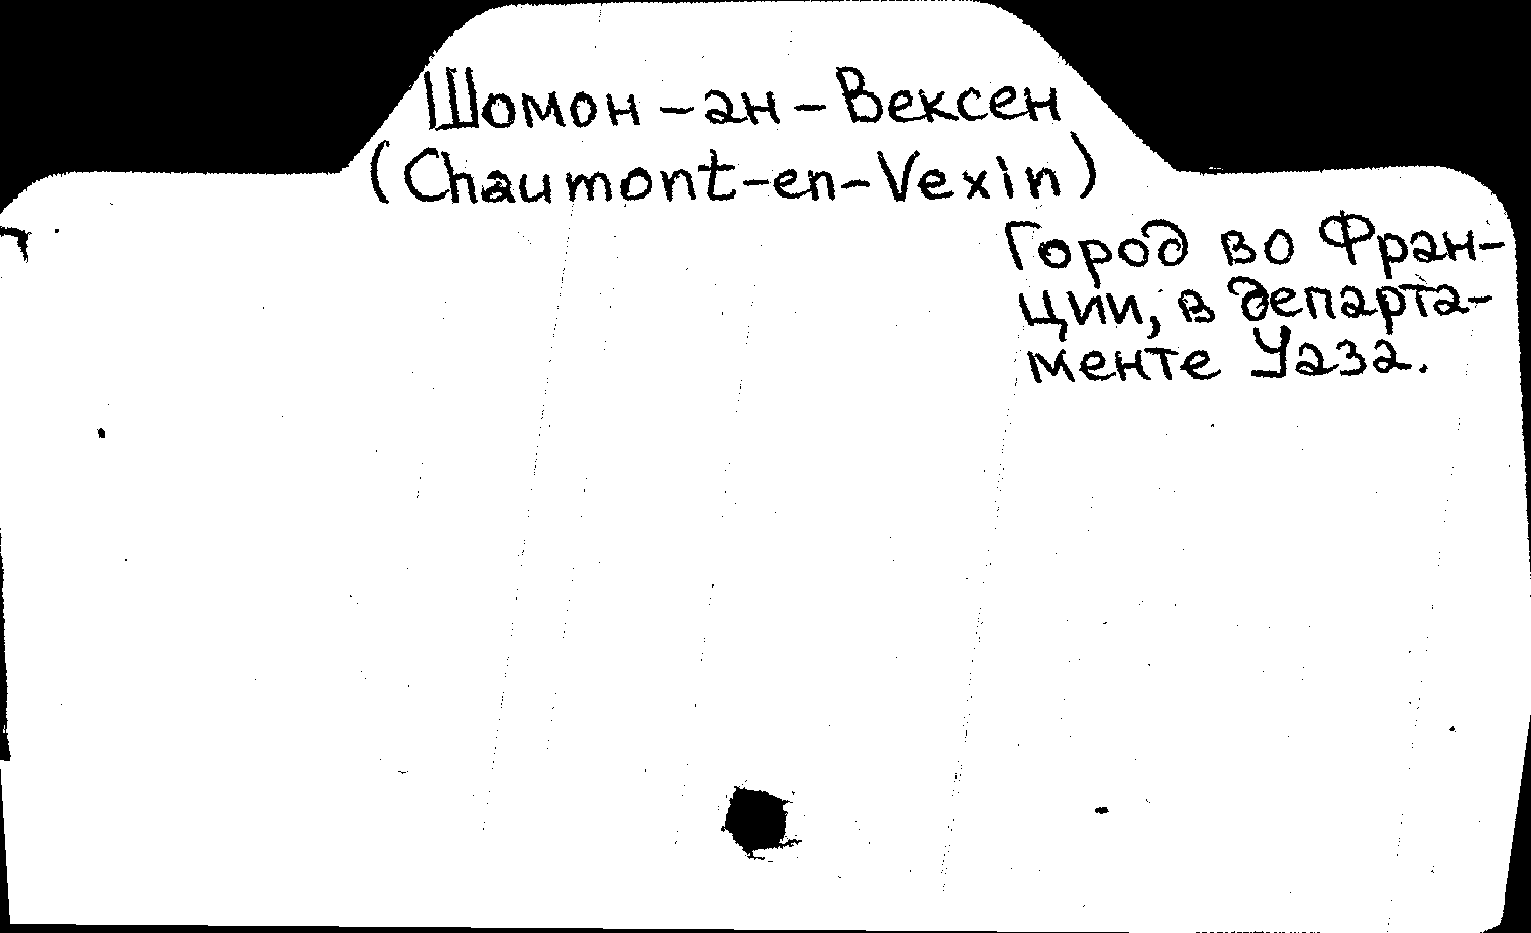 Шомон-ан-Вексен
(Chaumont-en-Vexin)
Город во Фран-
ции, в департа-
менте Уаза.